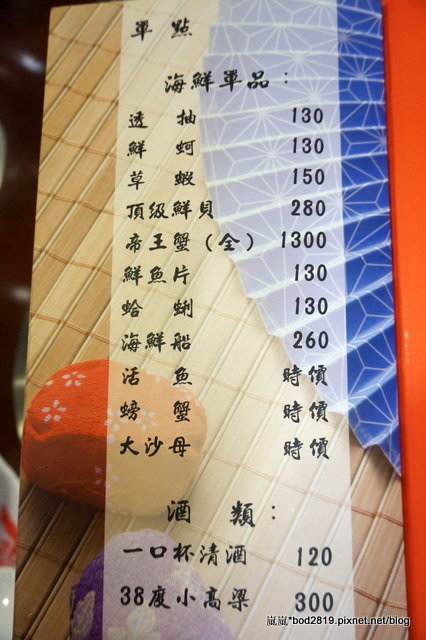 單 點
海鮮單品：
透 抽 130
鮮 蚵 130
草 蝦 150
頂級鮮貝 280
帝王蟹（全） 1300
鮮魚片 130
蛤 蜊 130
海鮮船 260
活 魚 時價
螃 蟹 時價
大沙母 時價
酒 類：
一口杯清酒 120
38度小高梁 300
嵐嵐*bod2819.pixnet.net/blog